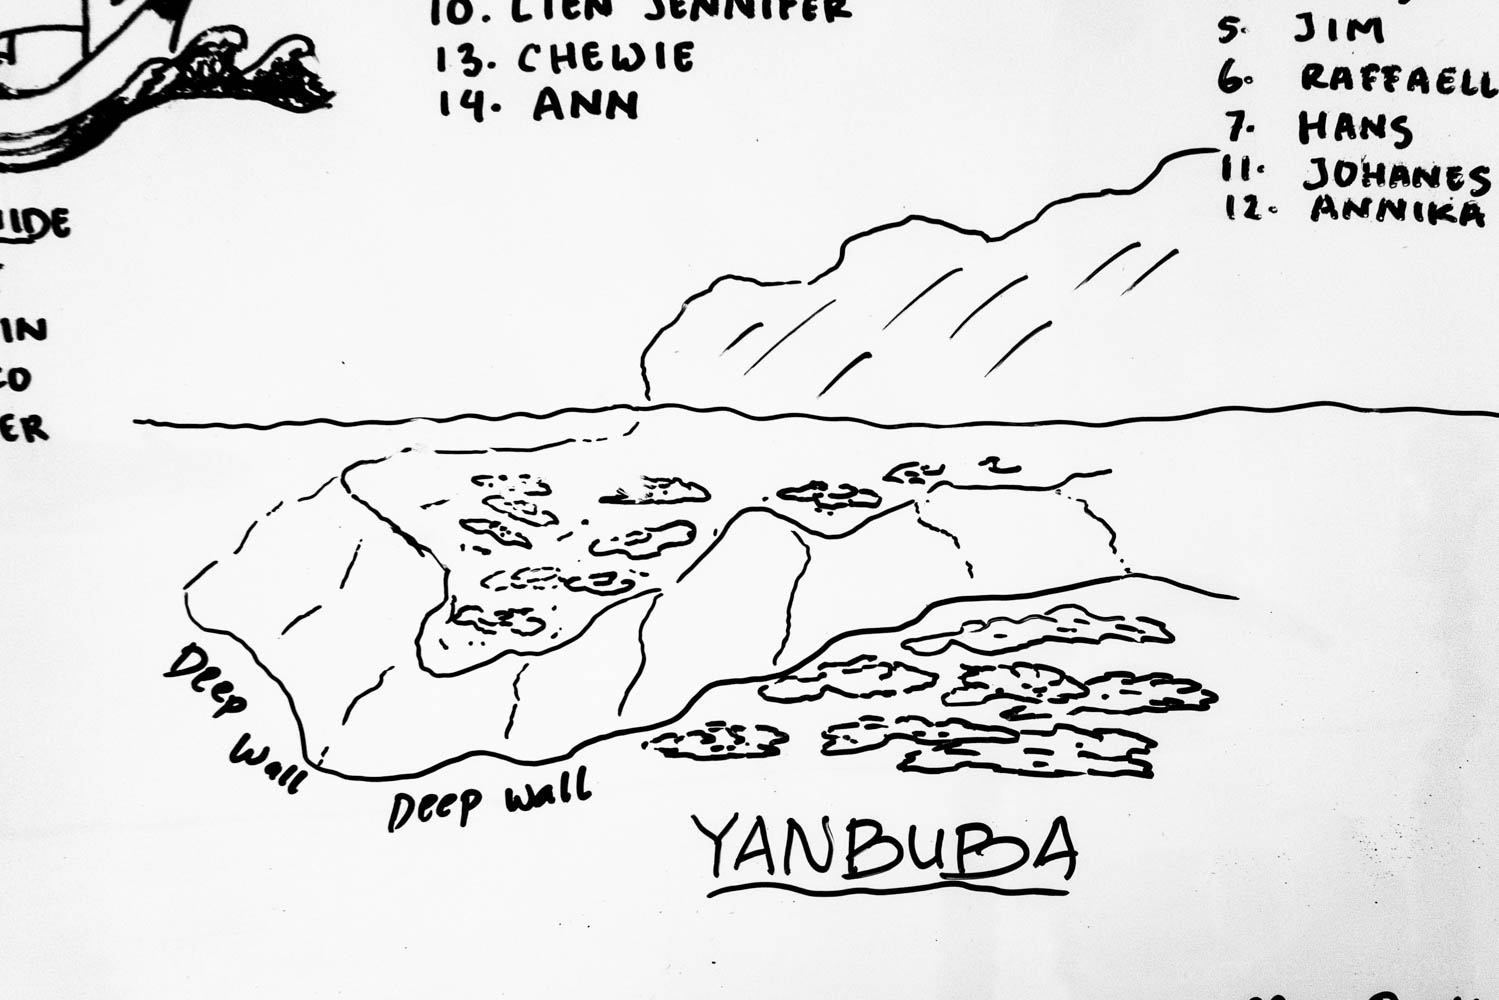 10. LIEN JENNIFER
13. CHEWIE
14. ANN
5. JIM
6. RAFFAELL
7. HANS
11. JOHANES
12. ANNIKA
UIDE
IN
CO
ER
Deep Wall
Deep Wall
YANBUBA